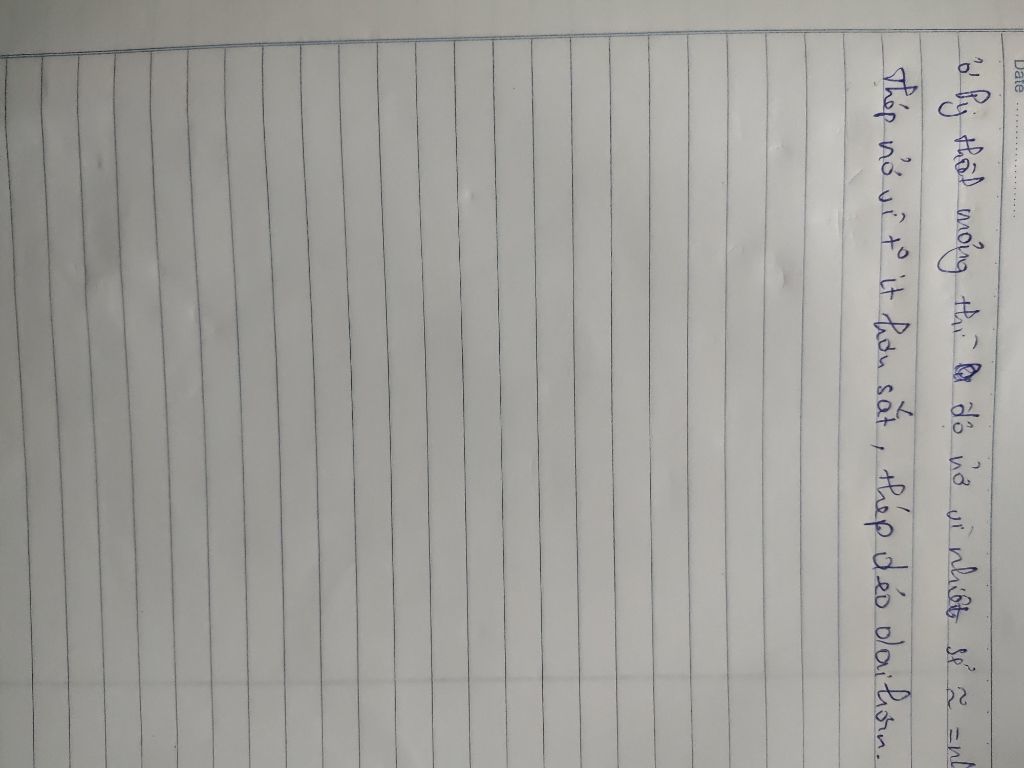 Date
ở kỹ thật mỏng thì độ nở vì nhiệt sẽ ≈ =
thép nở vì t° ít hơn sắt, thép dẻo dai hơn.